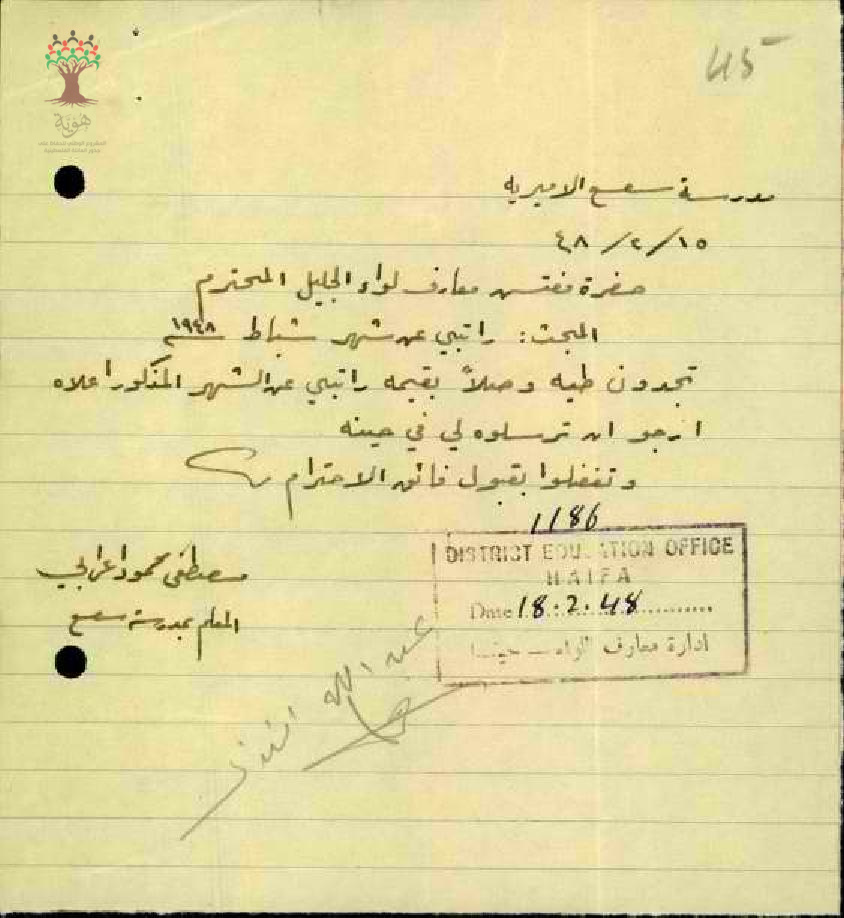 45
هوية
مدرسة سعسع الاميريه
١٥/٢/٤٨
حضرة مفتش معارف لواء الجليل المحترم
المبحث: راتبي عن شهر شباط سنة ١٩٤٨
تجدون طيه وصلاً بقيمه راتبي عن الشهر المذكور اعلاه
ارجو ان ترسلوه لي في حينه
وتفضلوا بقبول فائق الاحترام
1186
DISTRICT EDUCATION OFFICE
HAIFA
Date 18.2.48
ادارة معارف اللواء – حيفا
مصطفى محمود
المعلم بمدرسة سعسع
عبد الله